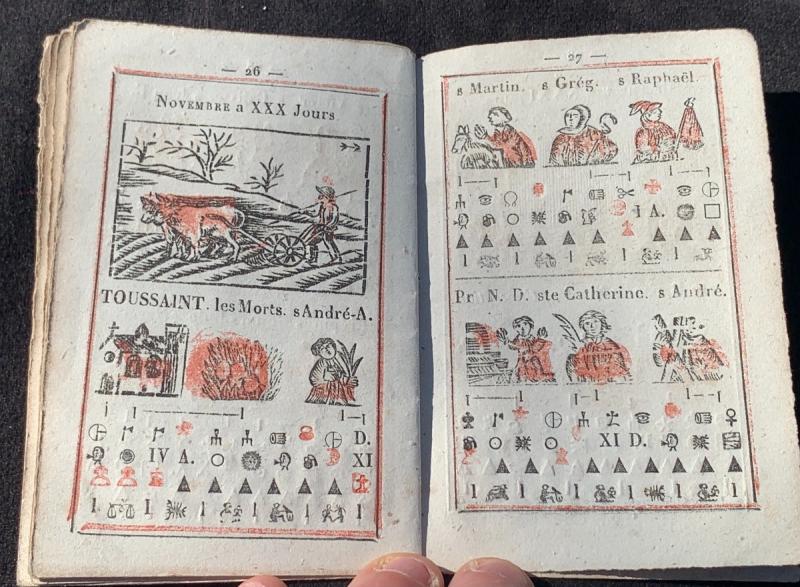 — 26 —
NOVEMBRE a XXX Jours
TOUSSAINT. les Morts. s André-A.
D.
IV A. XI
— 27 —
s Martin. s Grég. s Raphaël.
I A.
Pr N. D. ste Catherine. s André.
XI D.